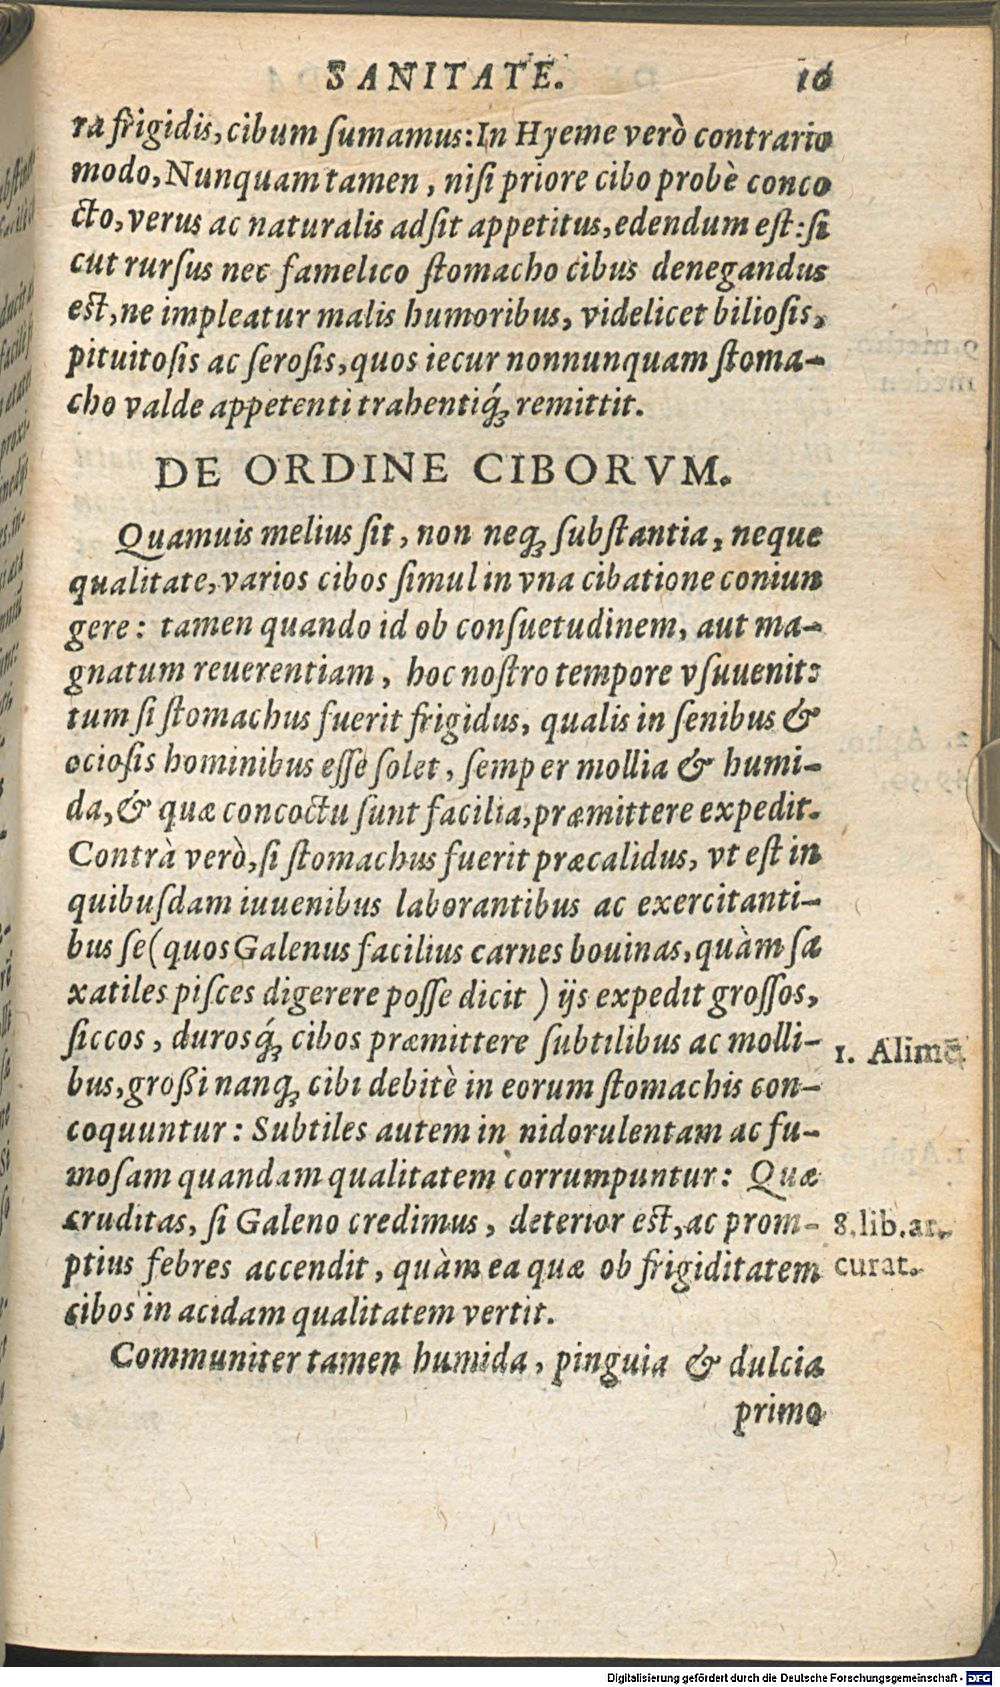 SANITATE. 16
ra frigidis, cibum ſumamus: In Hyeme verò contrario
modo, Nunquam tamen, niſi priore cibo probè conco
cto, verus ac naturalis adſit appetitus, edendum eſt: ſi
cut rurſus nec famelico ſtomacho cibus denegandus
eſt, ne impleatur malis humoribus, videlicet bilioſis,
pituitoſis ac ſeroſis, quos iecur nonnunquam ſtoma-
cho valde appetenti trahentiq́; remittit.
DE ORDINE CIBORVM.
Quamuis melius ſit, non neq; ſubſtantia, neque
qualitate, varios cibos ſimul in vna cibatione coniun
gere: tamen quando id ob conſuetudinem, aut ma-
gnatum reuerentiam, hoc noſtro tempore vſuuenit:
tum ſi ſtomachus fuerit frigidus, qualis in ſenibus &
ocioſis hominibus eſſe ſolet, ſemper mollia & humi-
da, & quæ concoctu ſunt facilia, præmittere expedit.
Contrà verò, ſi ſtomachus fuerit præcalidus, vt eſt in
quibuſdam iuuenibus laborantibus ac exercitanti-
bus ſe (quos Galenus facilius carnes bouinas, quàm ſa
xatiles piſces digerere poſſe dicit) ijs expedit groſſos,
ſiccos, duroſq́; cibos præmittere ſubtilibus ac molli-
bus, großi nanq; cibi debitè in eorum ſtomachis con-
coquuntur: Subtiles autem in nidorulentam ac fu-
moſam quandam qualitatem corrumpuntur: Quæ
cruditas, ſi Galeno credimus, deterior eſt, ac prom-
ptius febres accendit, quàm ea quæ ob frigiditatem
cibos in acidam qualitatem vertit.
Communiter tamen humida, pinguia & dulcia
primo
1. Alimẽ
8. lib. ar.
curat.
Digitalisierung gefördert durch die Deutsche Forschungsgemeinschaft - DFG